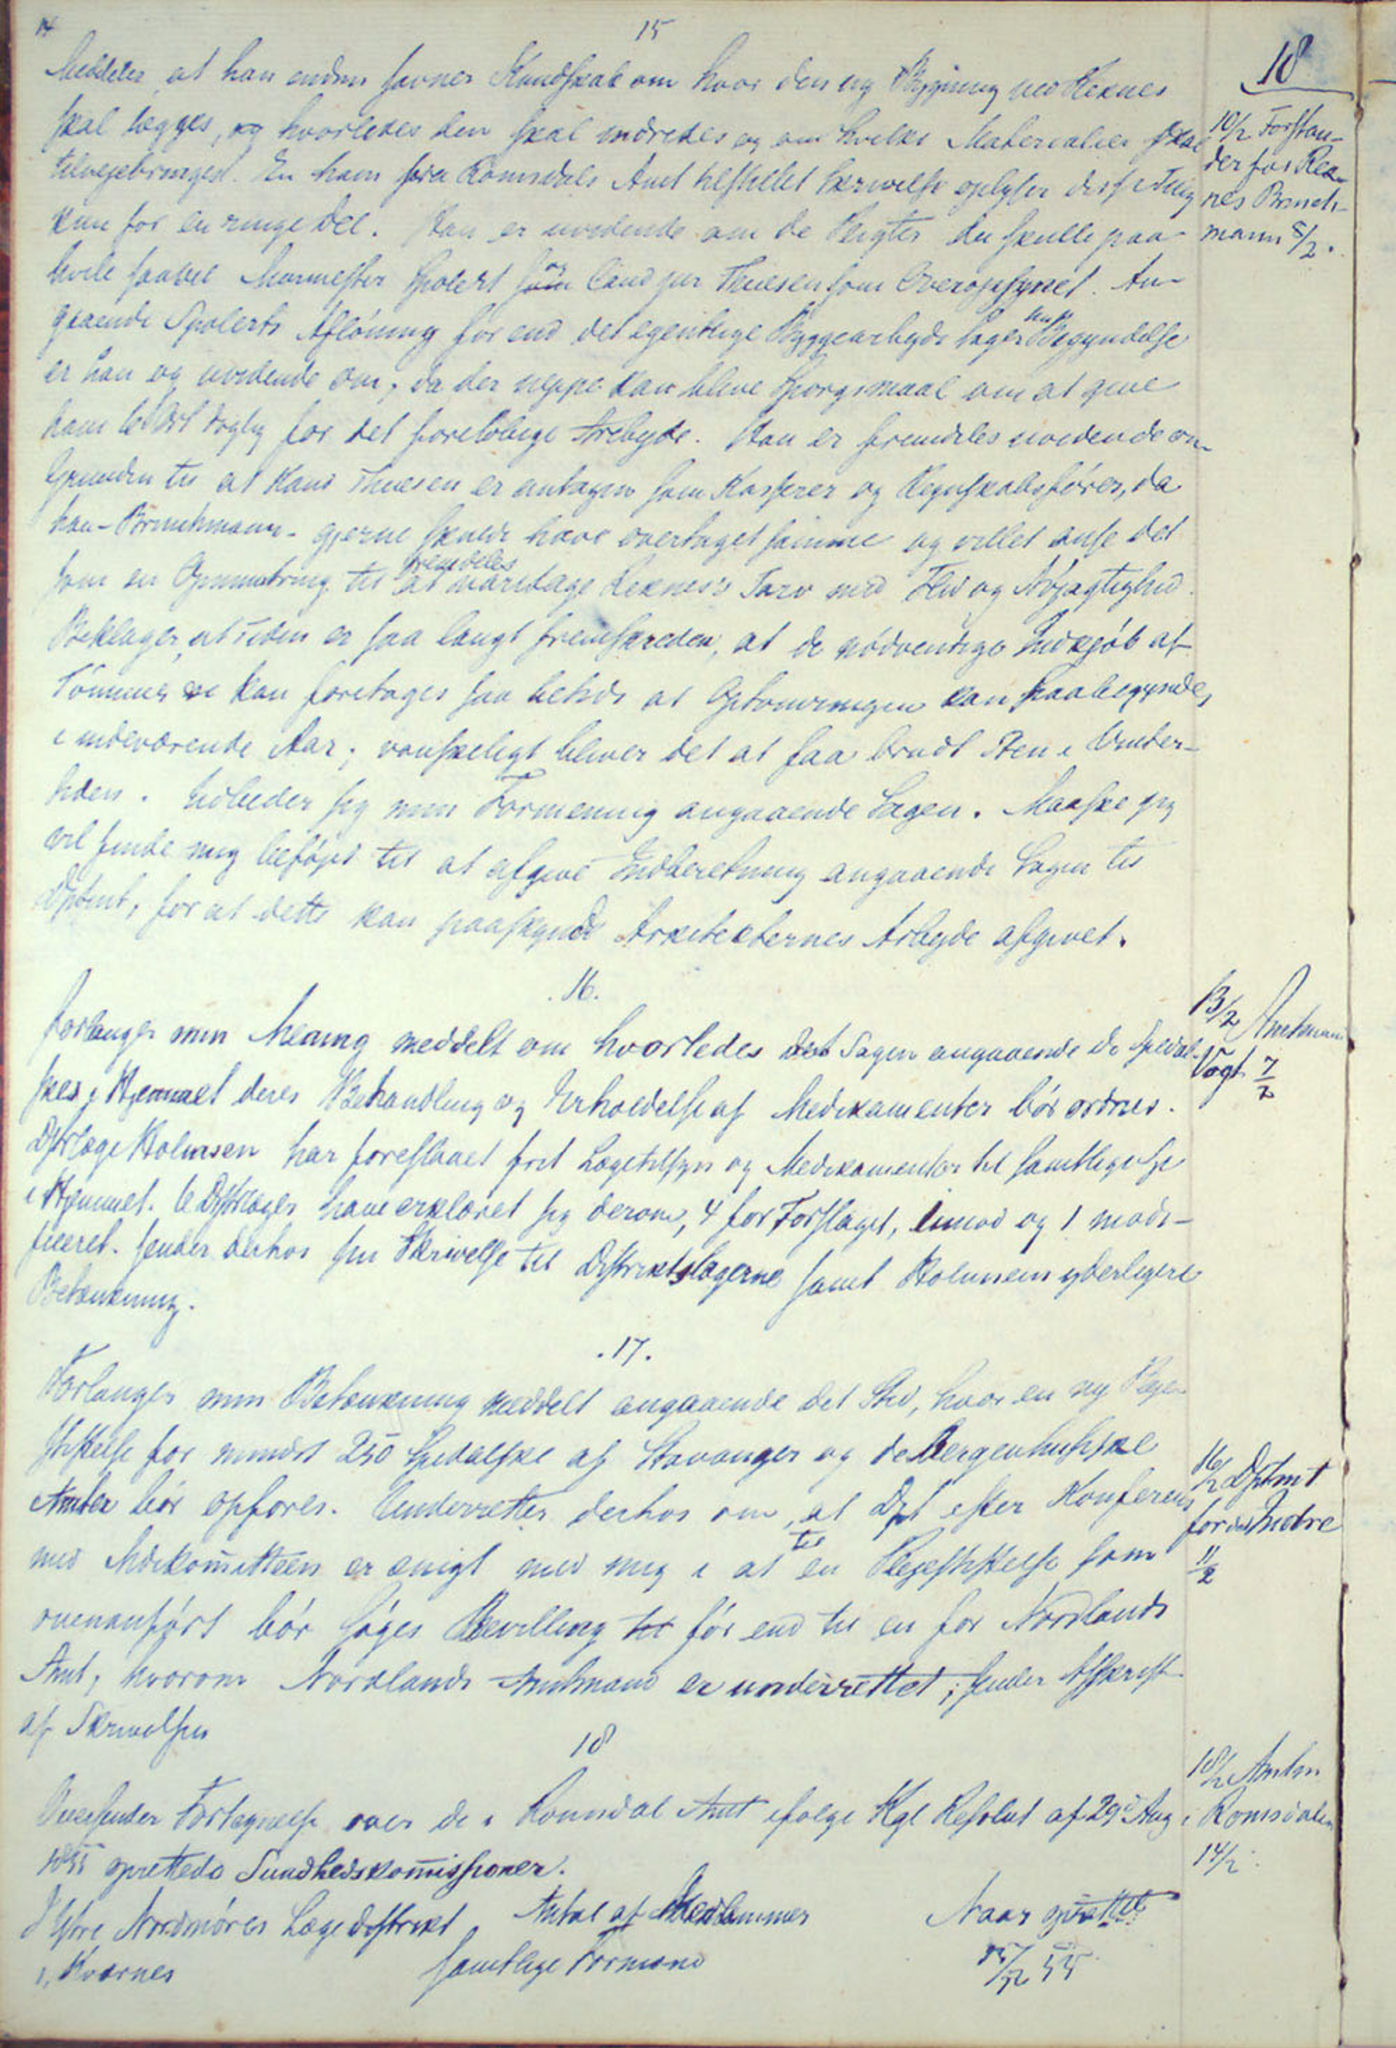 14
15
18
Meddeler, at han endnu savner Kundskab om hvor den ny Bygning ved Reknes
skal lægges, og hvorledes den skal indredes og om hvilke Materialier skal
tilvejebringes. En ham fra Romsdals Amt tilstillet Skrivelse oplyser disse Ting
kun for en ringe Del. Han er uvidende om de Pligter der skulle paa-
hvile saavel Murmester Spolert som Cand jur Thuesen som Overopsynet. An-
gaaende Spolerts Aflöning för end det egentlige Byggearbejde tager sin Begyndelse
er han og uvidende om, da der neppe kan blive Spörgsmaal om at give
ham daglig for det forelöbige Arbejde. Han er fremdeles uvidende om
Grunden til at Kand Thuesen er antagen som Kasserer og Regnskabsförer, da
han - Brinchmann - gjerne skulde have overtaget samme og villet anse det
som en Opmuntring til fremdeles at varetage Reknes's Tarv med Flid og Nöjagtighed.
Beklager, at Tiden er saa langt fremskreden, at de nödvendige Indkjöb af
Tömmer ei kan foretages saa betids at Optömringen kan paabegyndes
i indeværende Aar; vanskeligt bliver det at faa brudt Sten i Vinter-
tiden. Udbeder sig min Formening angaaende Sagen. Maaske jeg
vil finde mig beföjet til at afgive Indberetning angaaende Sagen til
Dptmt, for at dette kan paaskynde Arkitekternes Arbejde afgivet.
10/2 Forstan-
der for Rek-
nes Brinch-
mann 8/2.
.16.
Forlanger min Mening meddelt om hvorledes Sagen angaaende de Spedal-
skes i Hjemmet deres Behandling og Erholdelse af Medikamenter bör ordnes.
Dstrlæge Holmsen har foreslaaet frit Lægetilsyn og Medikamenter til samtlige Sp
i Hjemmet. 6 Dstrlæger have erklæret sig derom, 4 for Forslaget, 1 imod og 1 modi-
ficeret. Sender derhos sin Skrivelse til Distriktslægerne samt Holmsens yderligere
Betænkning.
13/2 Amtmand
Vogt 7/2
.17.
Forlanger min Betænkning meddelt angaaende det Sted, hvor en ny Pleje-
stiftelse for mindst 250 Spedalske af Stavanger og de Bergenhusiske
Amter bör opföres. Underretter derhos om, at Dpt efter Konferens
med Medkomitteen er enigt med mig i at til en Plejestiftelse som
ovenanfört bör söges Bevilling för end til en for Nordlands
Amt, hvorom Nordlands Amtmand er underrettet; sender Afskrift
af Skrivelsen
16/2 Dptmt
for det Indre
11/2
18
Oversender Fortegnelse over de i Romsdal Amt ifölge Kgl Resolut af 29d Aug
1855 oprettede Sundhedskommissioner.
18/2 Amtm
i Romsdalen
14/2
I Ytre Nordmöres Lægedistrikt, Antal af Medlemmer Naar oprettet
1, Kvernes samtlige Formænd